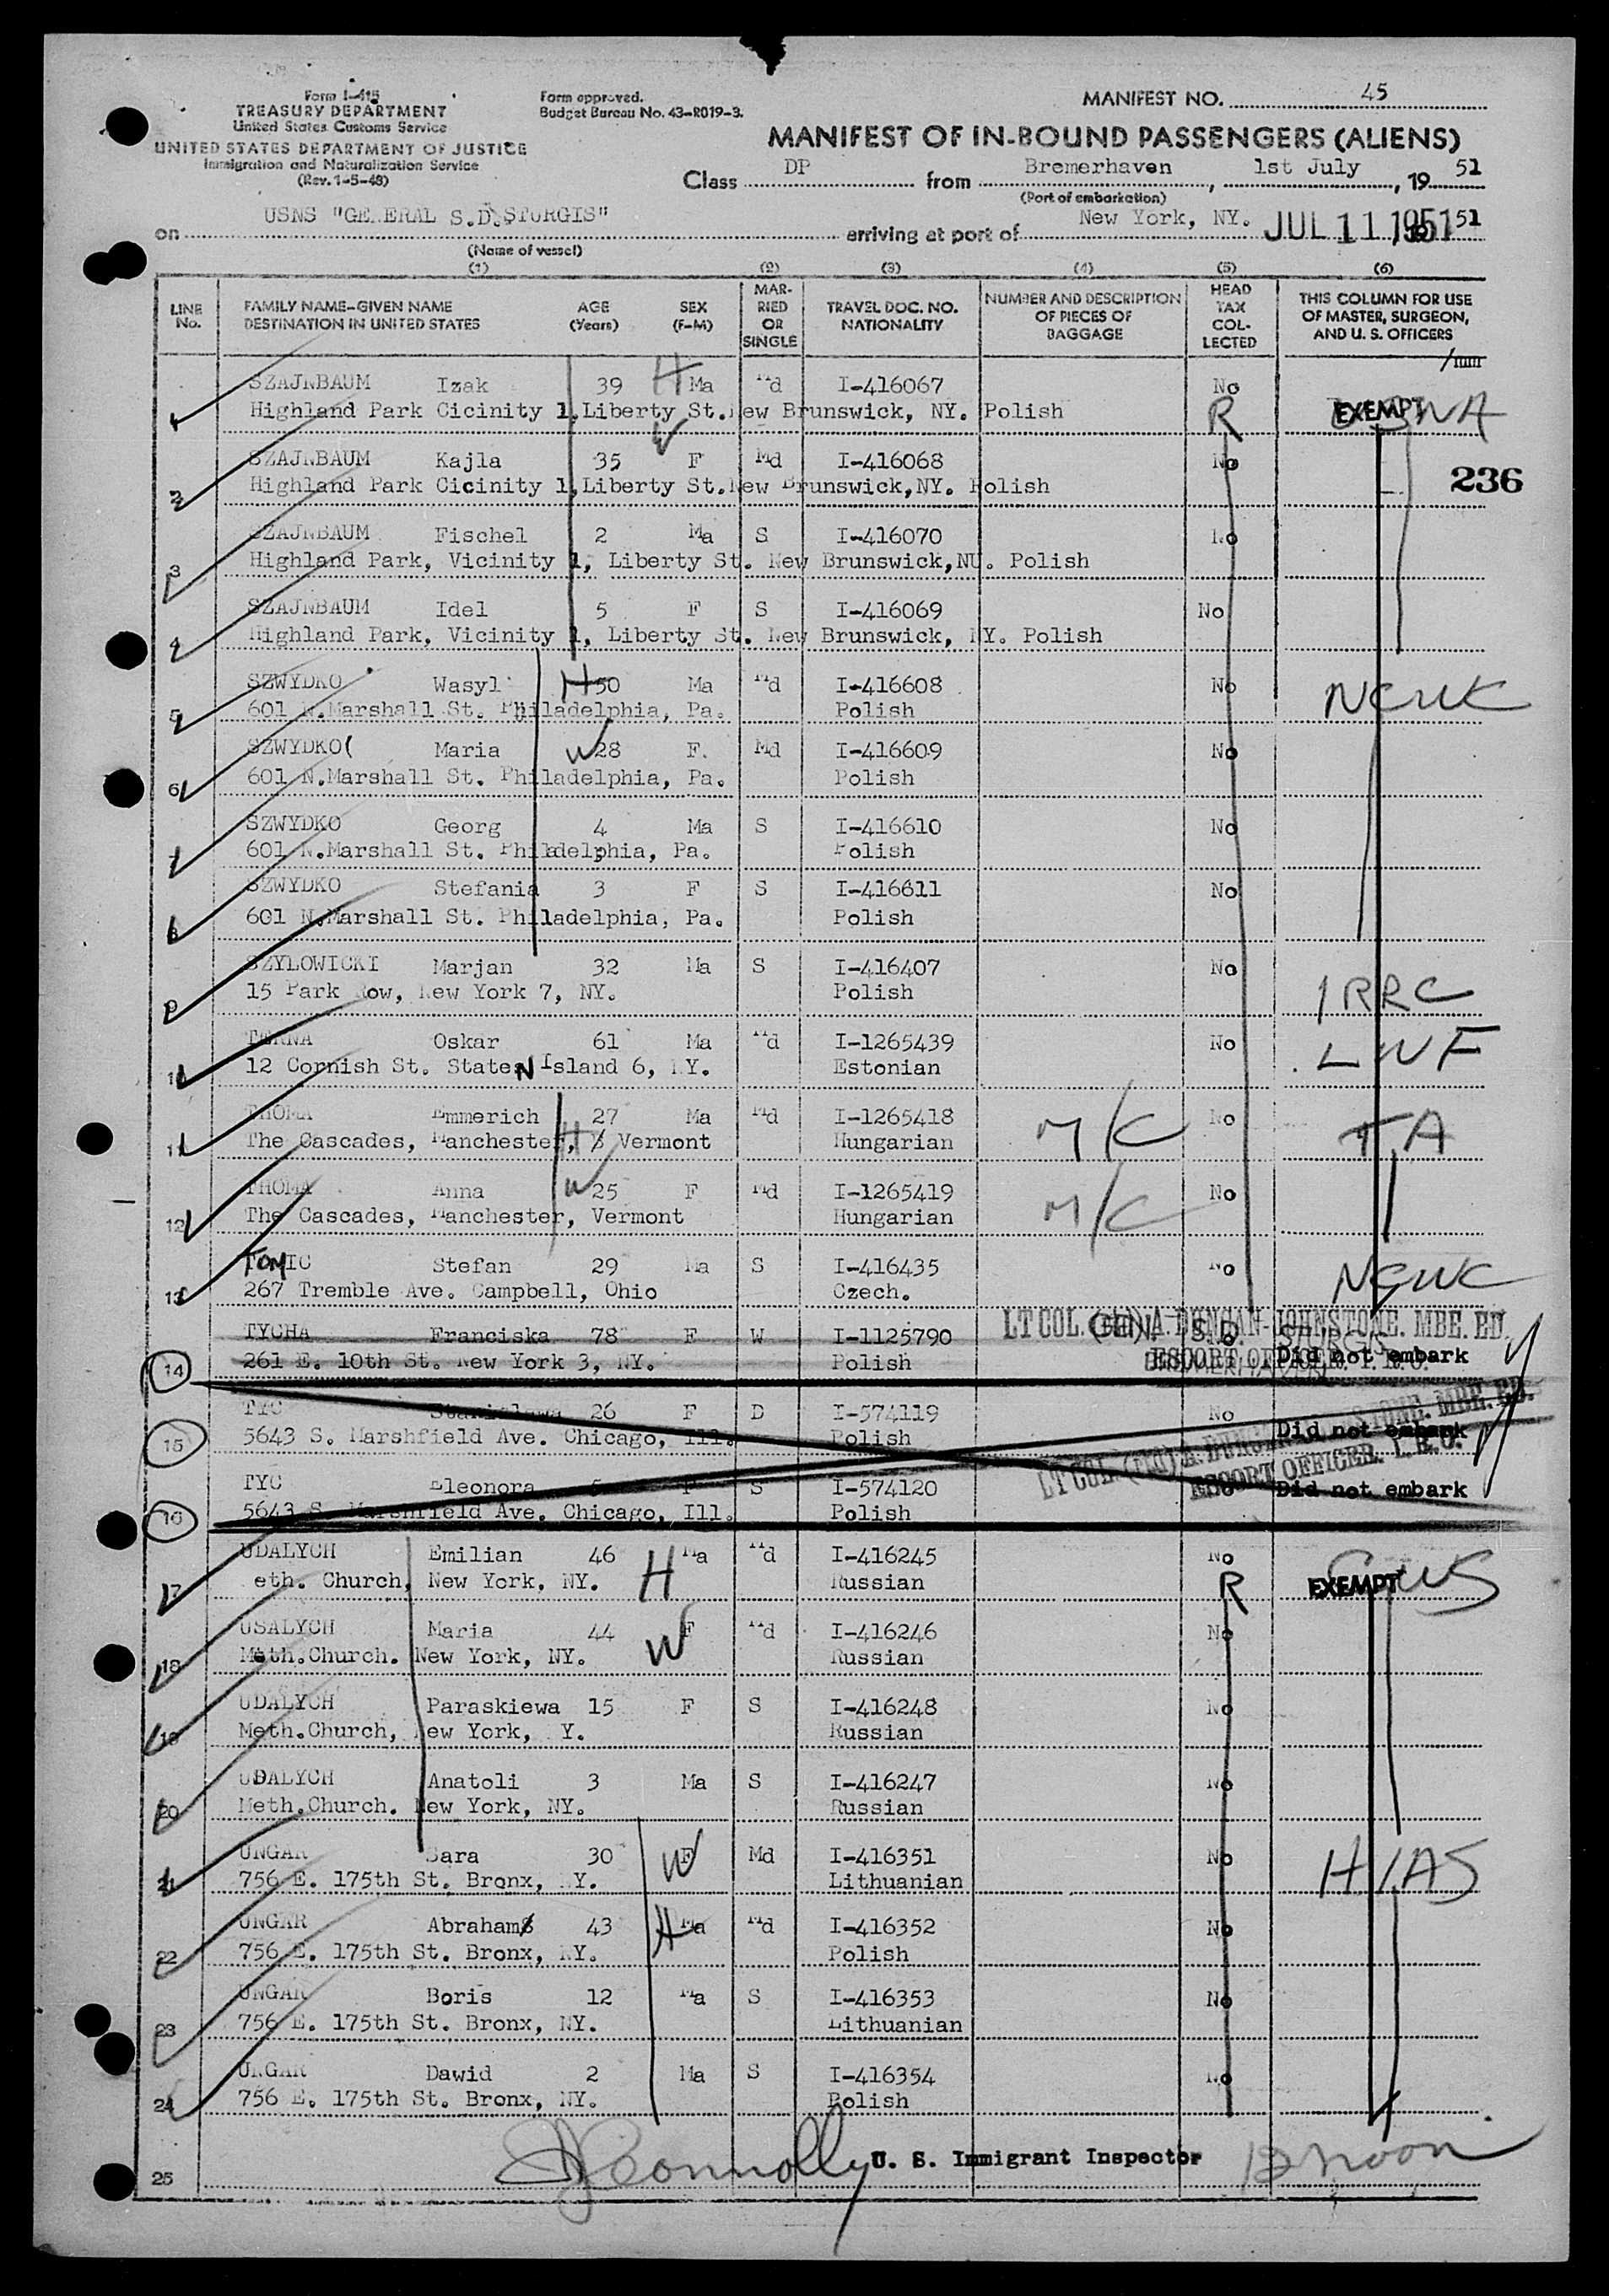 Form I-415
TREASURY DEPARTMENT
United States Customs Service
UNITED STATES DEPARTMENT OF JUSTICE
Immigration and Naturalization Service
(Rev. 1-5-48)
Form approved.
Budget Bureau No. 43-R019-3.
MANIFEST NO. 45
MANIFEST OF IN-BOUND PASSENGERS (ALIENS)
Class DP from Bremerhaven, 1st July, 19 51
(Port of embarkation)
on USNS "GENERAL S.D.STURGIS" arriving at port of New York, NY. JUL 11 1951 51
(Name of vessel)
(1) (2) (3) (4) (5) (6)
LINE No. FAMILY NAME-GIVEN NAME DESTINATION IN UNITED STATES AGE (Years) SEX (F-M) MARRIED OR SINGLE TRAVEL DOC. NO. NATIONALITY NUMBER AND DESCRIPTION OF PIECES OF BAGGAGE HEAD TAX COLLECTED THIS COLUMN FOR USE OF MASTER, SURGEON, AND U. S. OFFICERS
1 SZAJNBAUM Izak 39 H Ma Md I-416067 No
Highland Park Cicinity 1,Liberty St.New Brunswick, NY. Polish R EXEMPT
2 SZAJNBAUM Kajla 35 W F Md I-416068 No
236
Highland Park Cicinity 1,Liberty St.New Brunswick,NY. Polish
3 SZAJNBAUM Fischel 2 Ma S I-416070 No
Highland Park, Vicinity 1, Liberty St. New Brunswick,NU. Polish
4 SZAJNBAUM Idel 5 F S I-416069 No
Highland Park, Vicinity 1, Liberty St. New Brunswick, NY. Polish
5 SZWYDKO Wasyl H 50 Ma Md I-416608 No NCWC
601 N.Marshall St. Philadelphia, Pa. Polish
6 SZWYDKO( Maria W 28 F. Md I-416609 No
601 N.Marshall St. Philadelphia, Pa. Polish
7 SZWYDKO Georg 4 Ma S I-416610 No
601 N.Marshall St. Philadelphia, Pa. Polish
8 SZWYDKO Stefania 3 F S I-416611 No
601 N.Marshall St. Philadelphia, Pa. Polish
9 SZYLOWICKI Marjan 32 Ma S I-416407 No
15 Park Row, New York 7, NY. Polish IRRC
10 TORNA Oskar 61 Ma Md I-1265439 No LWF
12 Cornish St. StateN Island 6, NY. Estonian
11 THOMA Emmerich 27 Ma Md I-1265418 M/C No TA
The Cascades, Manchester, H Vermont Hungarian
12 THOMA Anna W 25 F Md I-1265419 M/C No
The Cascades, Manchester, Vermont Hungarian
13 TOMIC Stefan 29 Ma S I-416435 No NCWC
267 Tremble Ave. Campbell, Ohio Czech.
LT COL. (Rtd) A. DUNCAN-JOHNSTONE. MBE. ED.
14 TYCHA Franciska 78 F W I-1125790
261 E. 10th St. New York 3, NY. Polish ESCORT OFFICER Did not embark
15 TYC Stanislawa 26 F D I-574119 No
5643 S. Marshfield Ave. Chicago, Ill. Polish Did not embark
LT COL. (Rtd) A. DUNCAN-JOHNSTONE. MBE. ED.
ESCORT OFFICER. I. R. O.
16 TYC Eleonora 5 F S I-574120 Did not embark
5643 S. Marshfield Ave. Chicago, Ill. Polish
17 UDALYCH Emilian 46 H Ma Md I-416245 No CWS
eth. Church, New York, NY. Russian R EXEMPT
18 USALYCH Maria 44 W F Md I-416246 No
Meth.Church. New York, NY. Russian
19 UDALYCH Paraskiewa 15 F S I-416248 No
Meth.Church, New York, Y. Russian
20 UDALYCH Anatoli 3 Ma S I-416247 No
Meth.Church. New York, NY. Russian
21 UNGAR Sara 30 W F Md I-416351 No HIAS
756 E. 175th St. Bronx, Y. Lithuanian
22 UNGAR Abraham 43 H Ma Md I-416352 No
756 E. 175th St. Bronx, NY. Polish
23 UNGAR Boris 12 Ma S I-416353 No
756 E. 175th St. Bronx, NY. Lithuanian
24 UNGAR Dawid 2 Ma S I-416354 No
756 E. 175th St. Bronx, NY. Polish
25 J Connolly U. S. Immigrant Inspector 12 noon